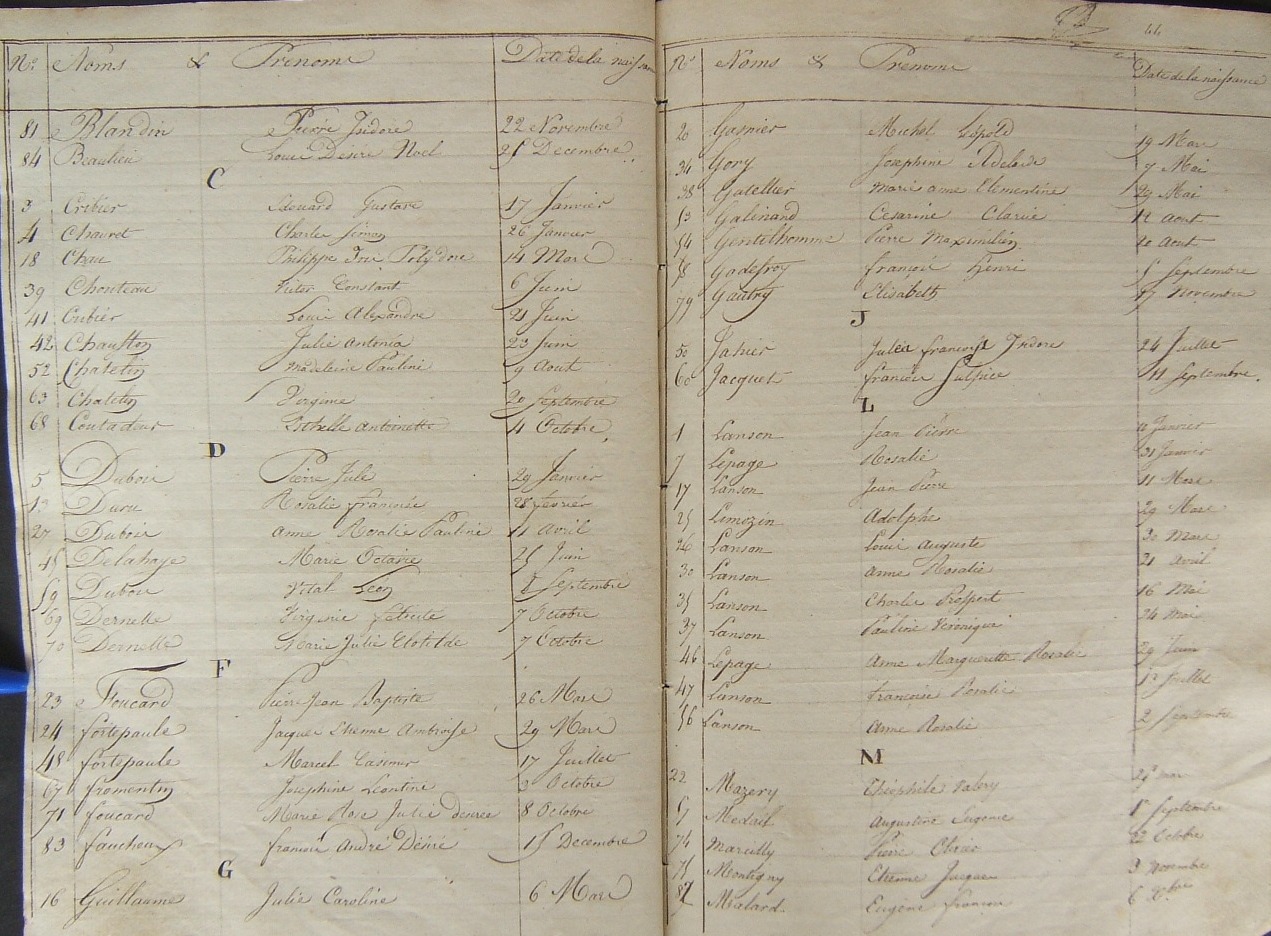 Nos Noms & Prénoms Date de la naissance
81 Blandin Pierre Isidore 22 Novembre
84 Beaulieu Louis Désiré Noel 25 Decembre
C
3 Cribier Edouard Gustave 17 Janvier
4 Chauvet Charles Simon 26 Janvier
18 Chau Philippe Polydore 14 Mars
39 Chouteau Victor Constant 6 Juin
41 Cribier Louis Alexandre 21 Juin
42 Julie Antonia 23 Juin
52 Chatelin Madeleine Pauline 9 Aout
63 Chatelin 20 Septembre
68 Coutadeur Esthelle Antoinette 4 Octobre
D
5 Dubois Pierre Jule 29 Janvier
13 Duru Rosalie françoise 28 fevrier
27 Dubois Anne Rosalie Pauline 11 Avril
45 Delahaye Marie Octavie 25 Juin
59 Dubois Vital Leon 8 Septembre
69 Dernelle Virginie 7 Octobre
70 Dernelle Marie Julie Clotilde 7 Octobre
F
23 Foucard Pierre Jean Baptiste 26 Mars
24 fortepaule Jacques Etienne Ambroise 29 Mars
48 fortepaule Marcel Casimir 17 Juillet
67 fromentin Josephine Leontine 3 Octobre
71 foucard Marie Rose Julie désirée 8 Octobre
83 faucheux francois André Désiré 15 Decembre
G
16 Guillaume Julie Caroline 6 Mars
44
No Noms & Prénoms Date de la naissance
20 Gasnier Michel Léopold 19 Mars
34 Gory Josephine Adelaide 7 Mai
38 Gatellier Marie anne Clementine 29 Mai
53 Galinand Cesarine Clarice 12 Aout
54 Gentilhomme Pierre Maximilien 10 Aout
58 Godefroy francois Henri 5 Septembre
79 Gautry Elisabeth 17 Novembre
J
50 Jahier Jules francois Isidore 24 Juillet
60 Jacquet francois Sulpice 11 Septembre
L
1 Lanson Jean Pierre Janvier
7 Lepage Rosalie 31 Janvier
17 Lanson Jean Pierre 11 Mars
25 Limozin Adolphe 29 Mars
26 Lanson Louis Auguste 30 Mars
30 Lanson Anne Rosalie 21 Avril
35 Lanson Charles Prosper 16 Mai
37 Lanson Pauline Véronique 24 Mai
46 Lepage Anne Marguerite Rosalie 29 Juin
47 Lanson françoise Rosalie 1er Juillet
56 Lanson Anne Rosalie 2 Septembre
M
22 Mazery Théophile Valery mars
57 Augustine Eugenie 1er Septembre
74 Marcilly Pierre Olivier 22 Octobre
75 Montigny Etienne Jacques 3 Novembre
82 Malard Eugène françois 6 Xbre